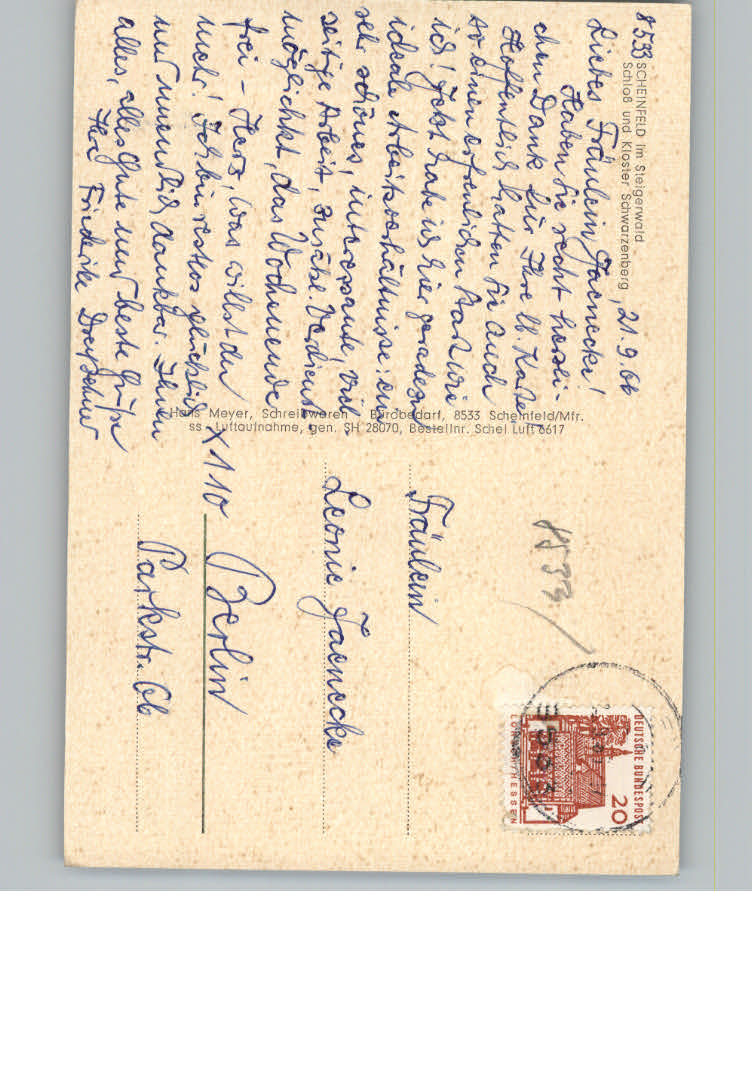 8533 SCHEINFELD im Steigerwald
Schloß und Kloster Schwarzenberg
, 21.9.66
Liebes Fräulein Jaenecke!
Haben Sie recht herzli-
chen Dank für Ihre lb. Karte.
Hoffentlich hatten Sie auch
so einen erfreulichen Start wie
ich! Jetzt habe ich hier geradezu
ideale Arbeitsverhältnisse: eine
sehr schönes, interessante, viel-
seitige Arbeit, zusätzl. Verdienst-
möglichkt, das Wochenende
frei - Herz, was willst du
mehr! Ich bin restlos glücklich
und unendlich dankbar. Ihnen
alles, alles Gute und beste Grüße
Ihre Friederike
Hans Meyer, Schreibwaren - Bürobedarf, 8533 Scheinfeld/Mfr.
ss Luftaufnahme, gen. SH 28070, Bestellnr. Schei Luft 6617
8533
DEUTSCHE BUNDESPOST
20
LORSCH/HESSEN
Fräulein
Leonie Jaenecke
X 110 Berlin
Parkstr. 6b